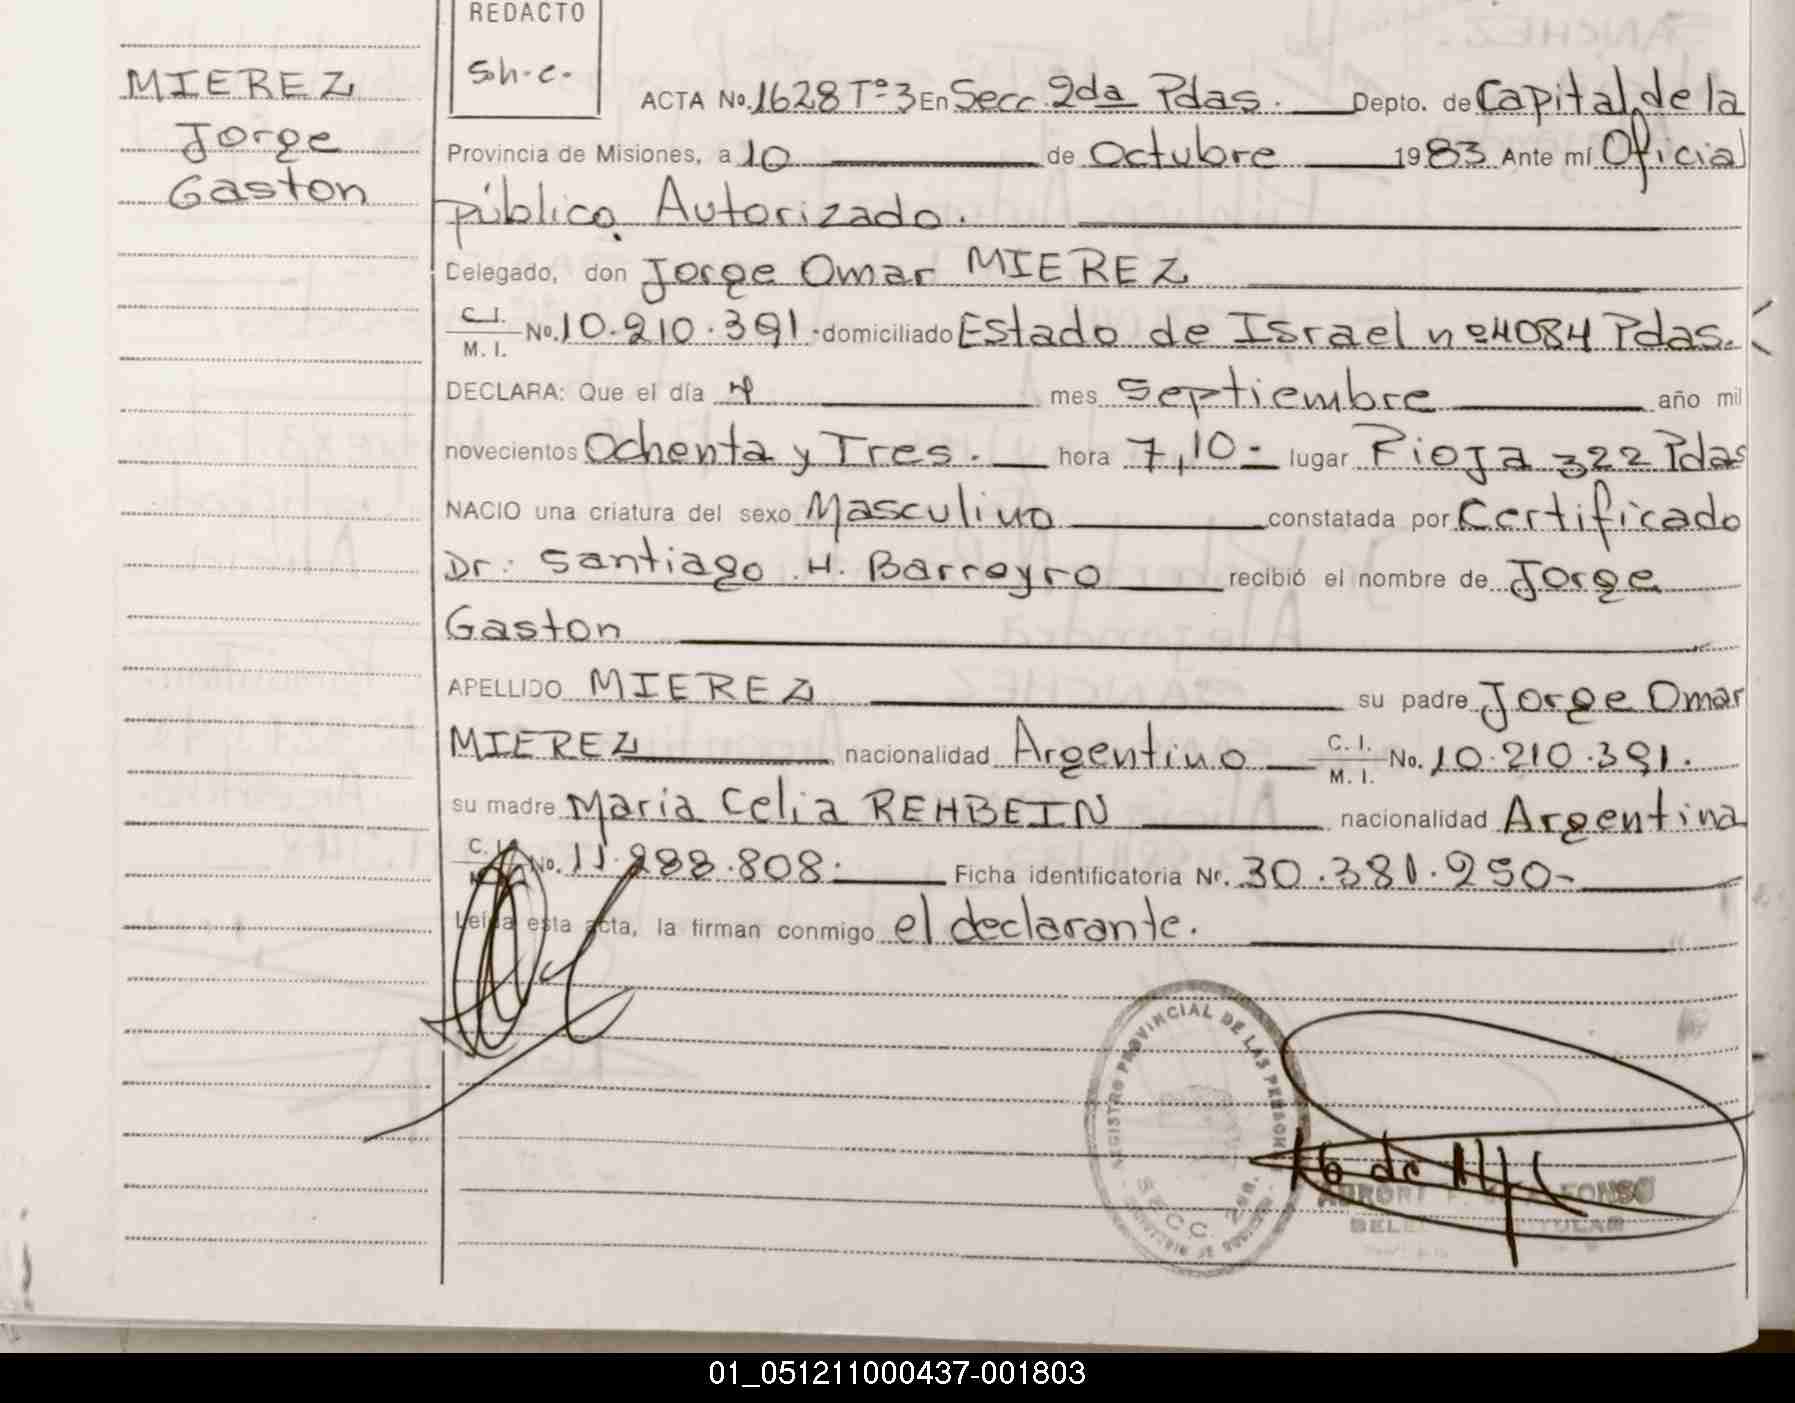 REDACTO
S.h.c.
MIEREZ
Jorge
Gaston
ACTA No. 1628 Tº 3 En Secc. 2da Pdas. Depto. de Capital de la
Provincia de Misiones, a 10 de Octubre 1983 Ante mí Oficial
público Autorizado.
Delegado, don Jorge Omar MIEREZ
C. I.
M. I. No. 10.210.391. domiciliado Estado de Israel nº 4084 Pdas.
DECLARA: Que el día 4 mes Septiembre año mil
novecientos Ochenta y Tres. hora 7,10- lugar Rioja 322 Pdas
NACIO una criatura del sexo Masculino constatada por Certificado
Dr. Santiago H. Barreyro recibió el nombre de Jorge
Gaston
APELLIDO MIEREZ su padre Jorge Omar
MIEREZ nacionalidad Argentino C. I. M. I. No. 10.210.391.
su madre Maria Celia REHBEIN nacionalidad Argentina
C. I. No. 11.288.808. Ficha identificatoria Nr. 30.381.250-
Leída esta acta, la firman conmigo el declarante.
REGISTRO PROVINCIAL DE LAS PERSON
SECC. 2da.
01_051211000437-001803